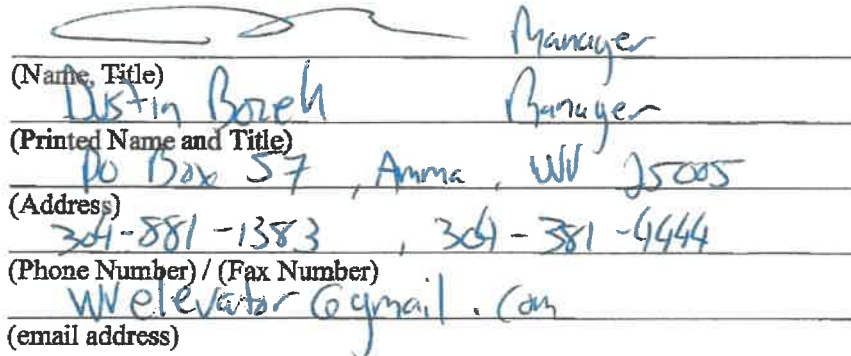 Manager
(Name, Title)
Dustin Bozell Manager
(Printed Name and Title)
PO Box 57, Amma, WV 25005
(Address)
304-881-1383, 304-381-4444
(Phone Number) / (Fax Number)
WVelevator@gmail.com
(email address)